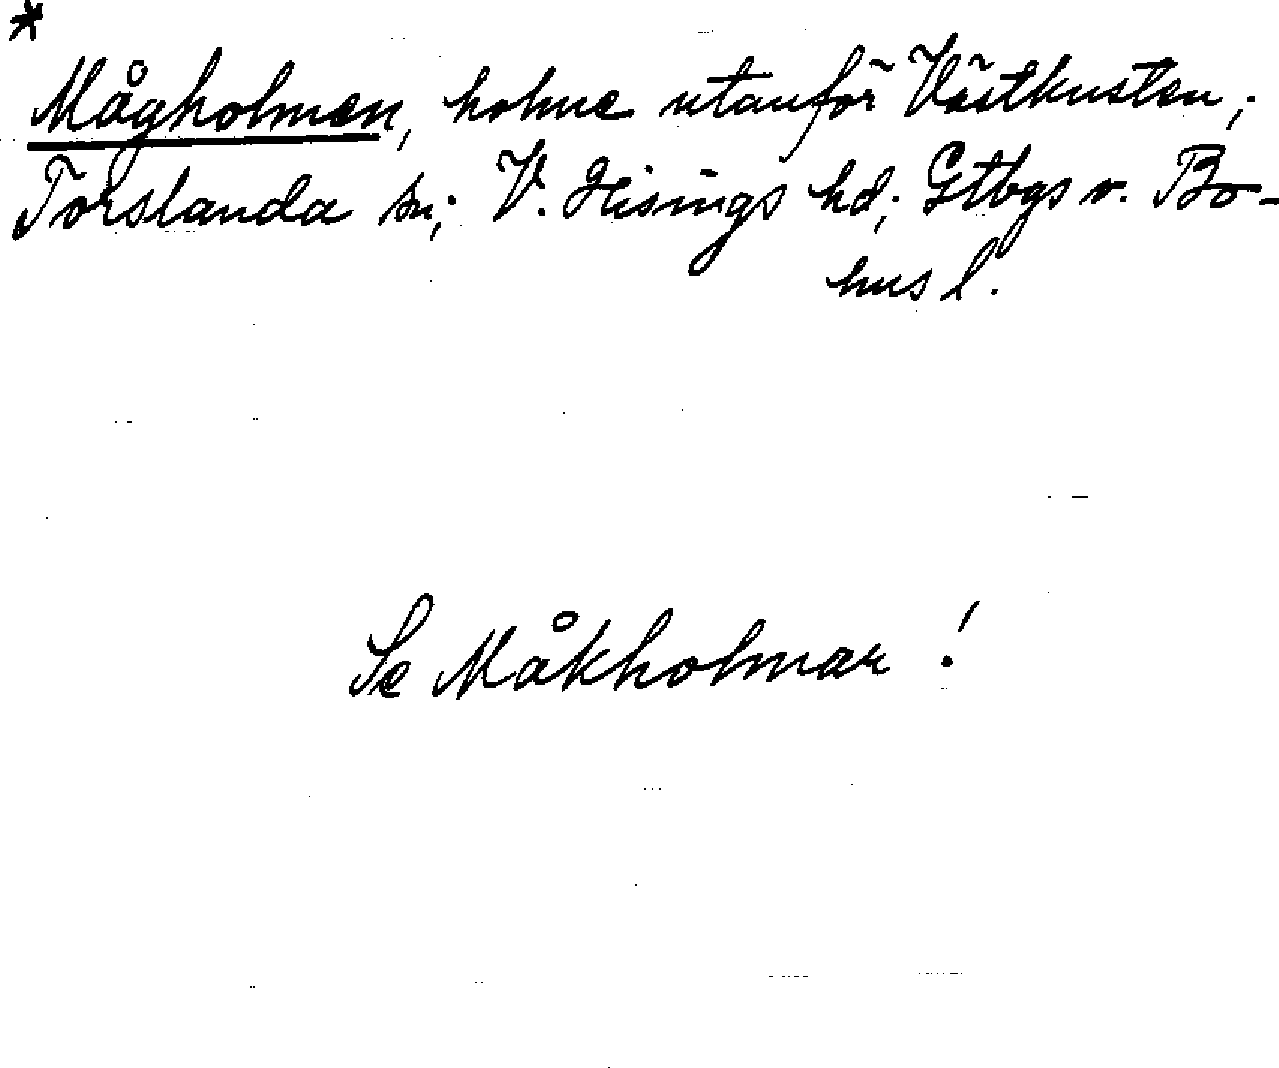 *
Mågholmen, holme utanför Västkusten;
Torslanda sn; V. Hisings hd; Gtbgs o. Bo-
hus l.
Se Måkholmar !